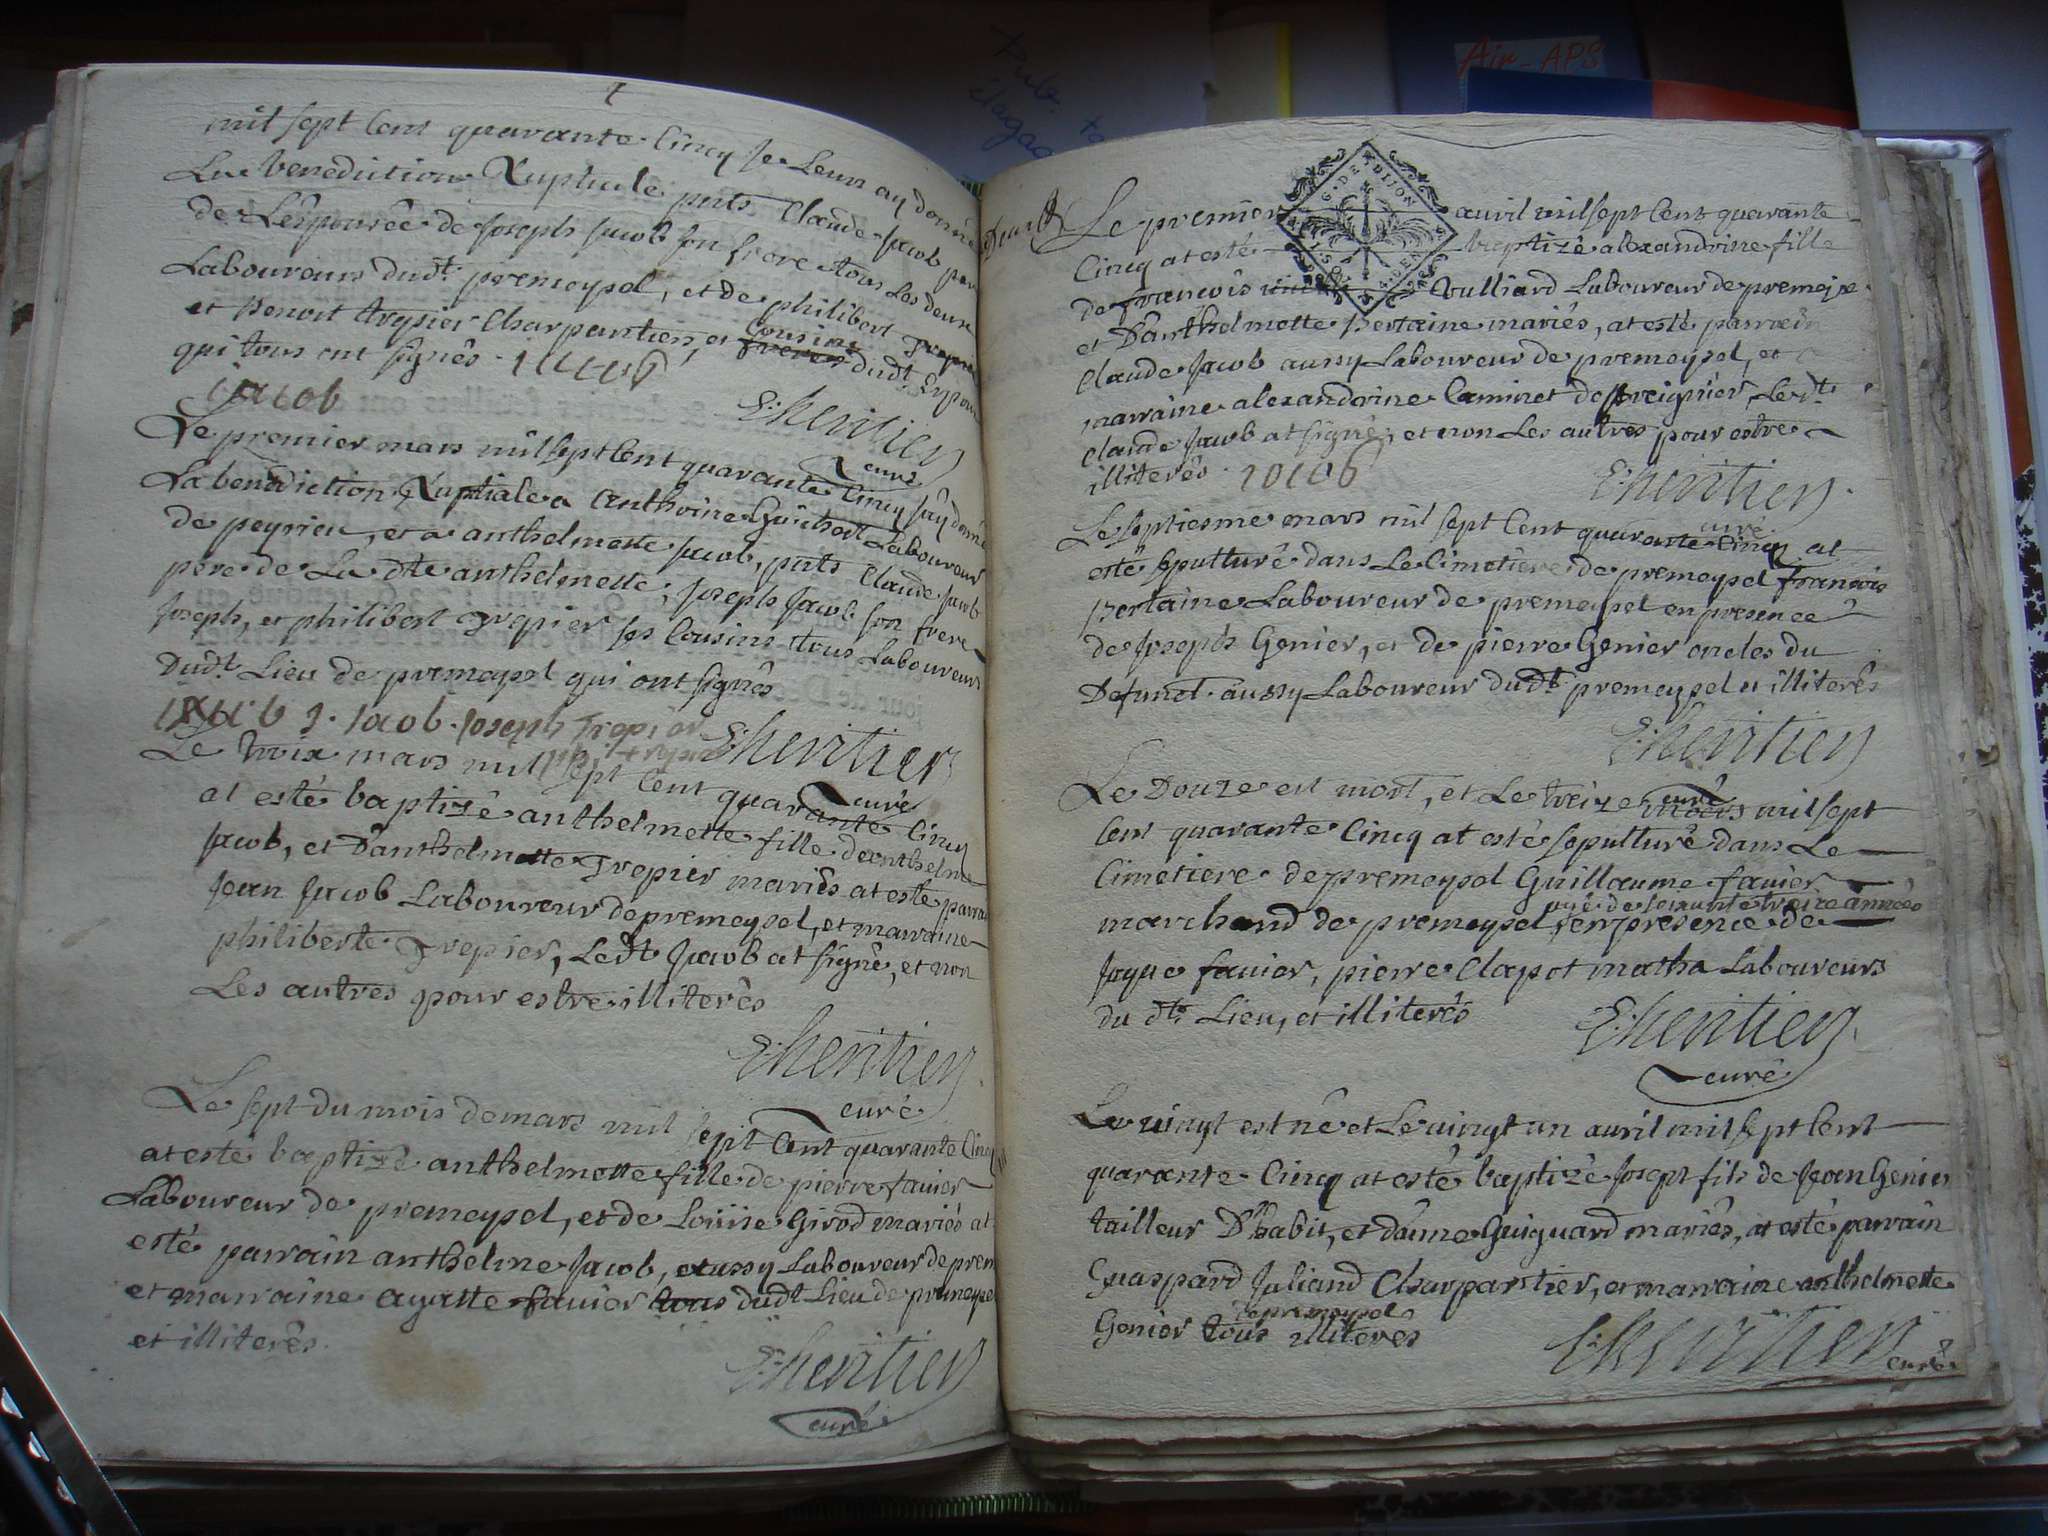 mil sept Cent quarante Cinq je Leur ay donné
La benediction Nuptiale pnts Claude Jacob pere
de L'espousée de Joseph Jacob son frere tous Les deux
Laboureurs dudt. premeysel, et de philibert Trepier
et Benoit trepier Charpantier et Cousins freres dudt Epoux
qui tous ont signés. iacob
iacob
E: heritier
curé
Le premier mars mil sept Cent quarante Cinq j'ay donné
La benediction Nuptiale a Anthoine Guichert Laboureur
de peyrieu, et a anthelmette Jacob, pnts Claude Jacob
pere de La dte anthelmette, Joseph Jacob son frere
Joseph, et philibert Trepier ses Cousins tous Laboureurs
Dudt. Lieu de premeysel qui ont signés
iacob J. iacob. Joseph Trepier
E: heritier
curé
Le trois mars mil sept Cent quarante Cinq
at esté baptizé anthelmette fille d'anthelme
Jacob, et D'anthelmette Trepier mariés at esté parra
Jean Jacob Laboureur de premeysel, et marraine
philiberte Trepier, Ledt Jacob at signé, et non
Les autres pour estre illiterés
E: heritier
curé
Le sept du mois de mars mil sept Cent quarante Cinq
at esté baptizé anthelmette fille de pierre favier
Laboureur de premeysel, et de Loüise Girod mariés at
esté parrain anthelme Jacob, aussy Laboureur de prem
et marraine agatte favier tous dudt Lieu de premeysel
et illiterés.
E: heritier
curé
G. DE DIJON
Le premier avril mil sept Cent quarante
Cinq at esté baptizé alexandrine fille
de françois Vulliard Laboureur de premeise
et D'anthelmette pertaine mariés, at esté parrain
Claude Jacob aussy Laboureur de premeysel, et
marraine alexandrine Caminet de preignier, Ledt.
Claude Jacob at signé, et non Les autres pour estre
illiterés. iacob
E: heritier.
curé
Le septiesme mars mil sept Cent quarante Cinq at
esté sepulturé dans Le Cimetiere de premeysel francois
pertaine Laboureur de premeysel en presence
de Joseph Genier, et de pierre Genier oncles du
Defunct. aussy Laboureur dudt. premeysel et illiterés
E: heritier
curé
Le Douze est mort, et Le treize mars mil sept
Cent quarante Cinq at esté sepulturé dans Le
Cimetiere de premeysel Guillaume favier
agé de soixante treize années
marchand de premeysel, en presence de
Jaque favier, pierre Clapot matha Laboureurs
du dt. Lieu, et illiterés
E: heritier
curé
Le vingt est né et Le vingt un avril mil sept Cent
quarante Cinq at esté baptizé Josept fils de Jean Genier
tailleur D'habit, et d'aime Guiguard mariés, at esté parrain
Guaspard Juliand Charpantier, et marraine anthelmette
de premeysel
Genier tous illiteres
E: heritier
curé
Air-APS